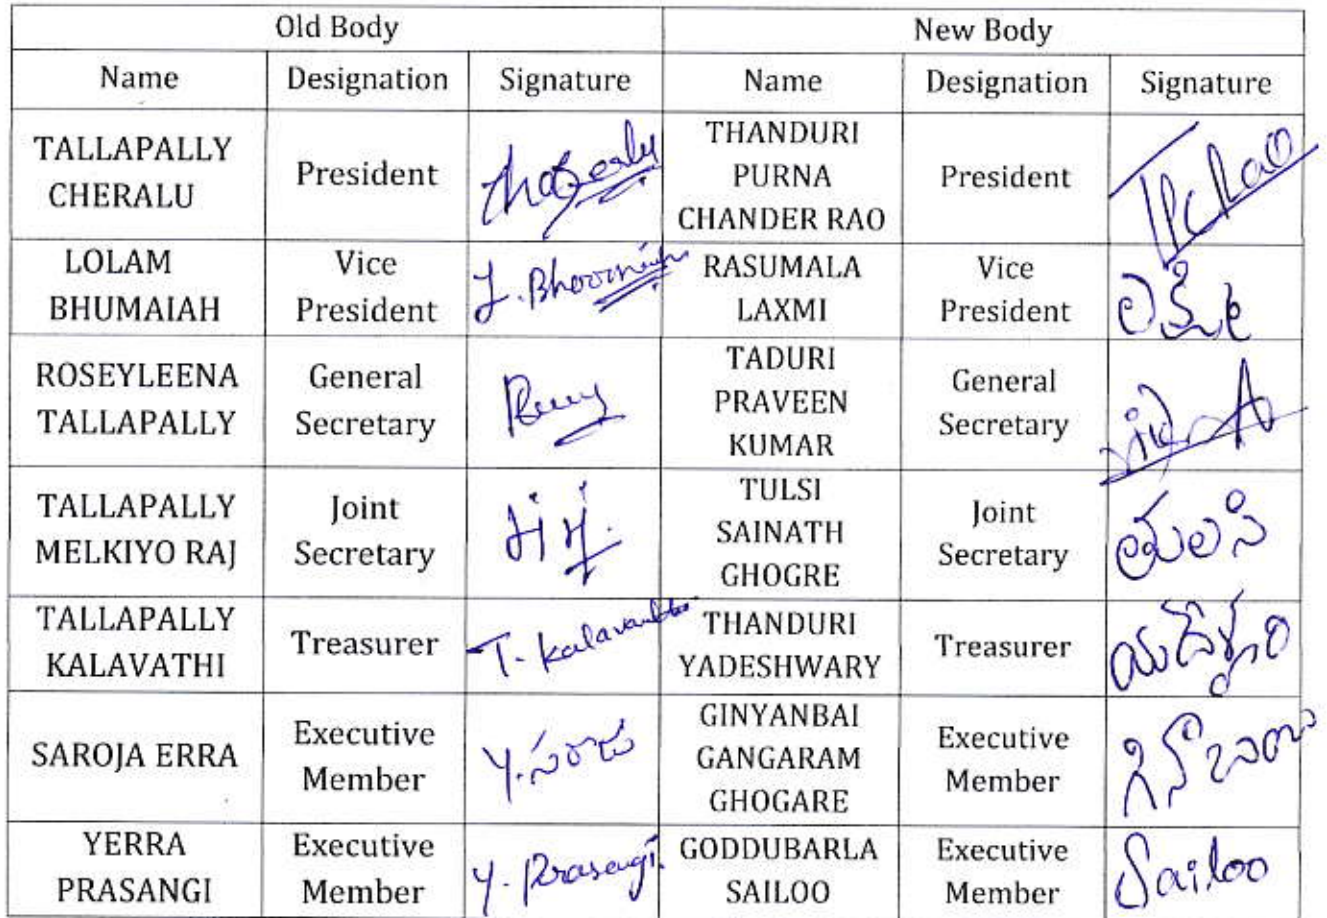 Old Body New Body
Name Designation Signature Name Designation Signature
TALLAPALLY CHERALU President THANDURI PURNA CHANDER RAO President TPCRao
LOLAM BHUMAIAH Vice President L. Bhoomaiah RASUMALA LAXMI Vice President లక్ష్మి
ROSEYLEENA TALLAPALLY General Secretary TADURI PRAVEEN KUMAR General Secretary
TALLAPALLY MELKIYO RAJ Joint Secretary TULSI SAINATH GHOGRE Joint Secretary తులసి
TALLAPALLY KALAVATHI Treasurer T. Kalavathi THANDURI YADESHWARY Treasurer
SAROJA ERRA Executive Member Y. సరోజ GINYANBAI GANGARAM GHOGARE Executive Member
YERRA PRASANGI Executive Member Y. Prasangi. GODDUBARLA SAILOO Executive Member Sailoo